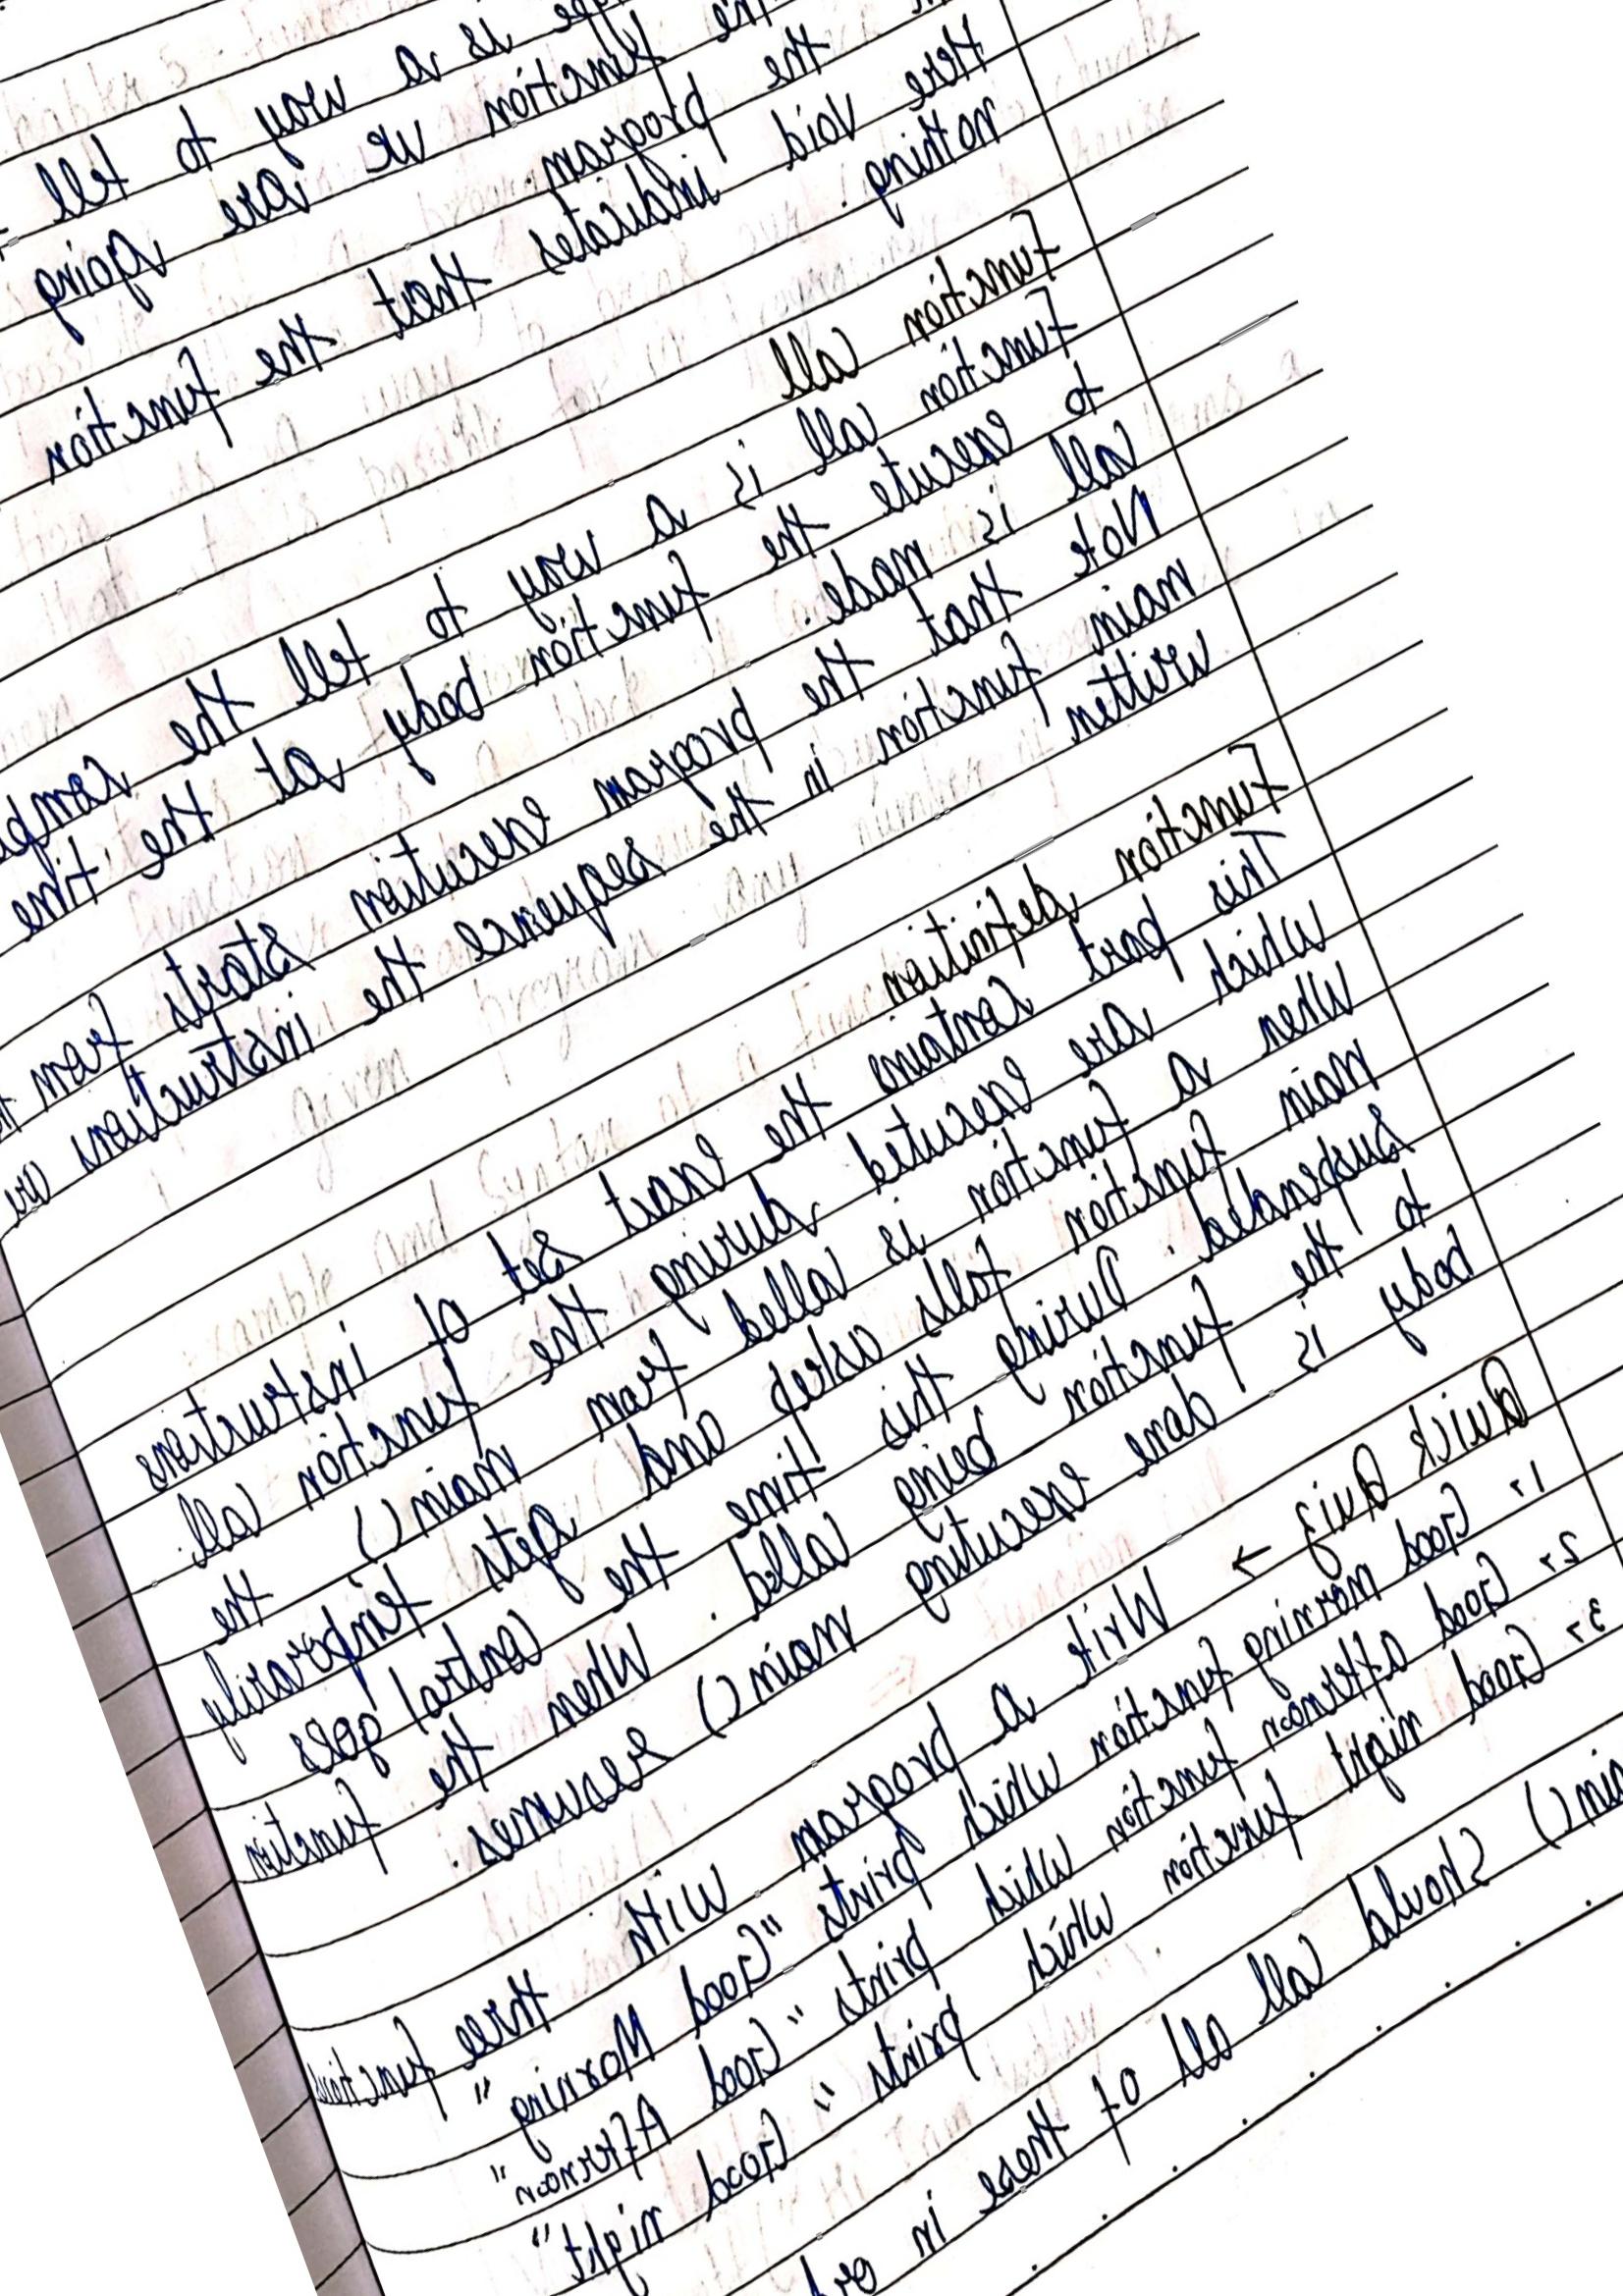 is a way to tell
function we are going
the program.
Here void indicates that the function
nothing.
Function call
Function call is a way to tell the
to execute the function body at the time
call is made.
Note that the program execution starts from
main function in the sequence the instructions
written
Function definition
This part contains the exact set of instructions
which are executed during the function call.
When a function is called from main() the
main function falls asleep and gets temporarily
suspended. During this time the control goes
to the function being called. When the function
body is done executing main() resumes.
Quick Quiz → Write a program with three functions
1> Good morning function which prints "Good Morning"
2> Good afternoon function which prints "Good Afternoon"
3> Good night function which prints "Good night"
should call all of these in